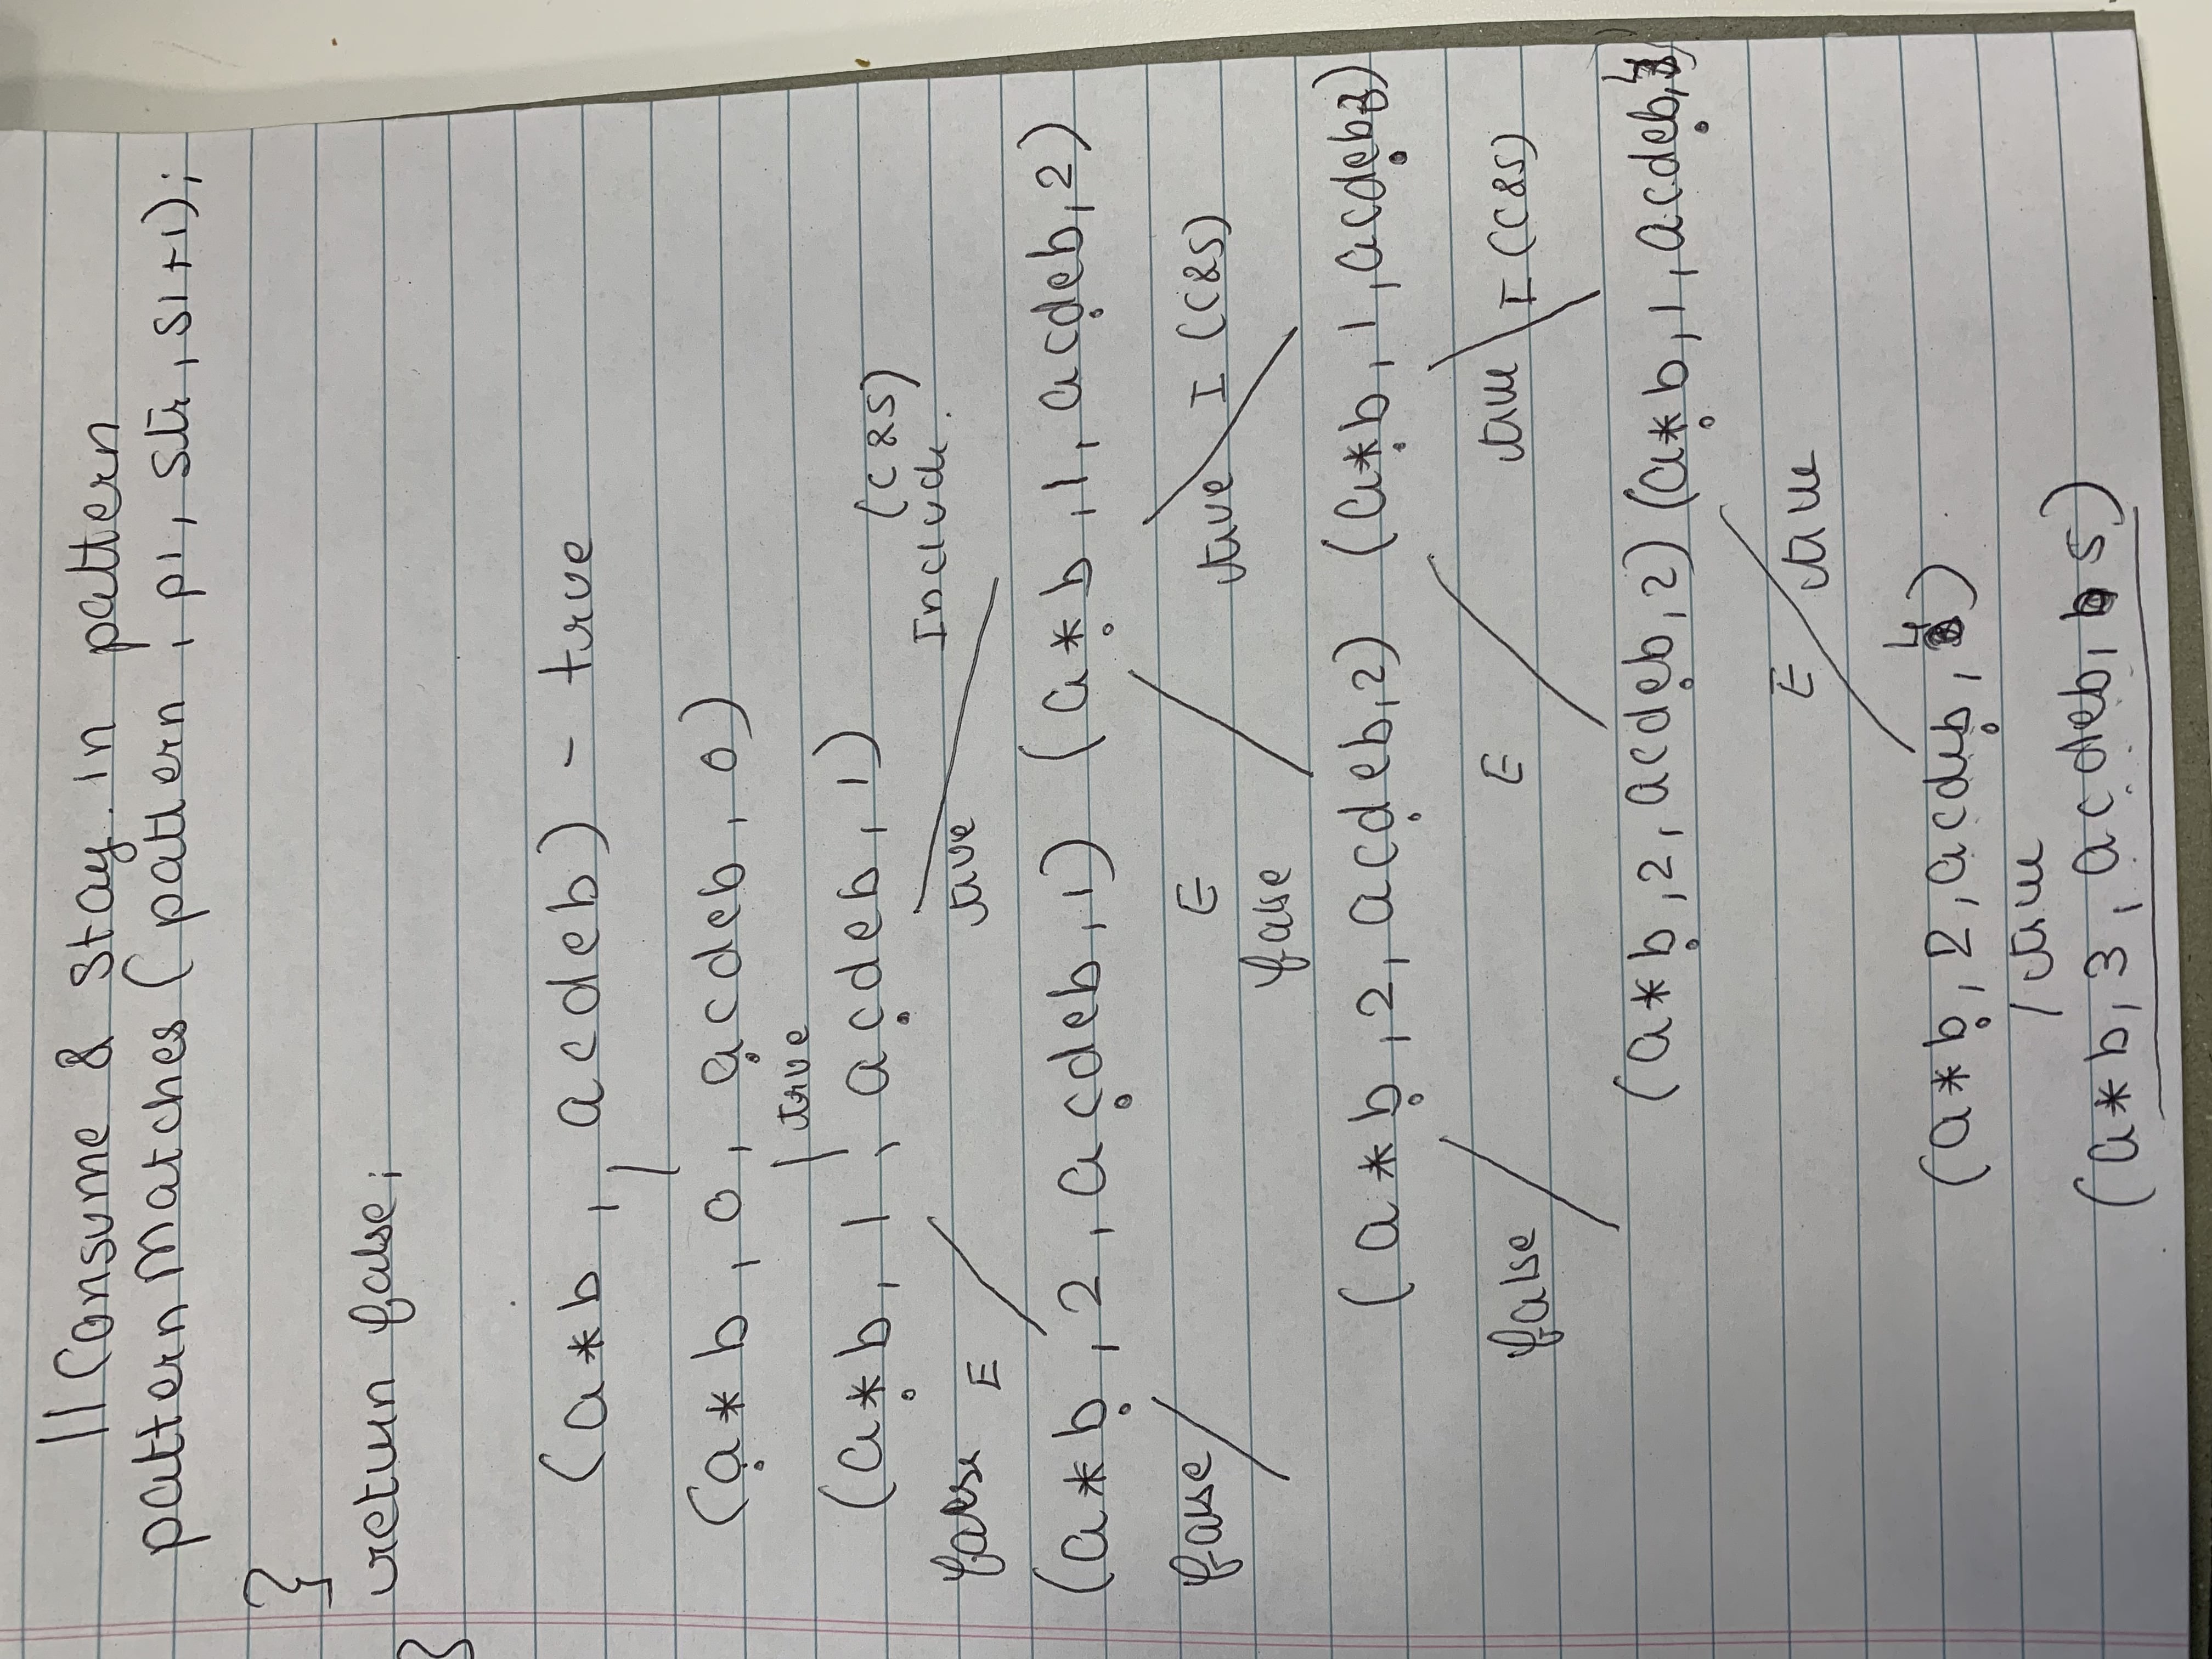 // Consume & stay in pattern
patternMatches ( pattern , p1, str, s1+1);
}
return false;
}
(a*b , acdeb) - true
(a*b, 0, acdeb, 0)
true
(a*b, 1, acdeb, 1)
(C&S)
false E true Include.
(a*b, 2, acdeb, 1) (a*b, 1, acdeb, 2)
false E true I (C&S)
false
(a*b, 2, acdeb, 2) (a*b, 1, acdeb 3)
false E true I (C&S)
(a*b, 2, acdeb, 2) (a*b, 1, acdeb, 4)
E true
(a*b, 2, acdeb, 4)
true
(a*b, 3, acdeb, 5)